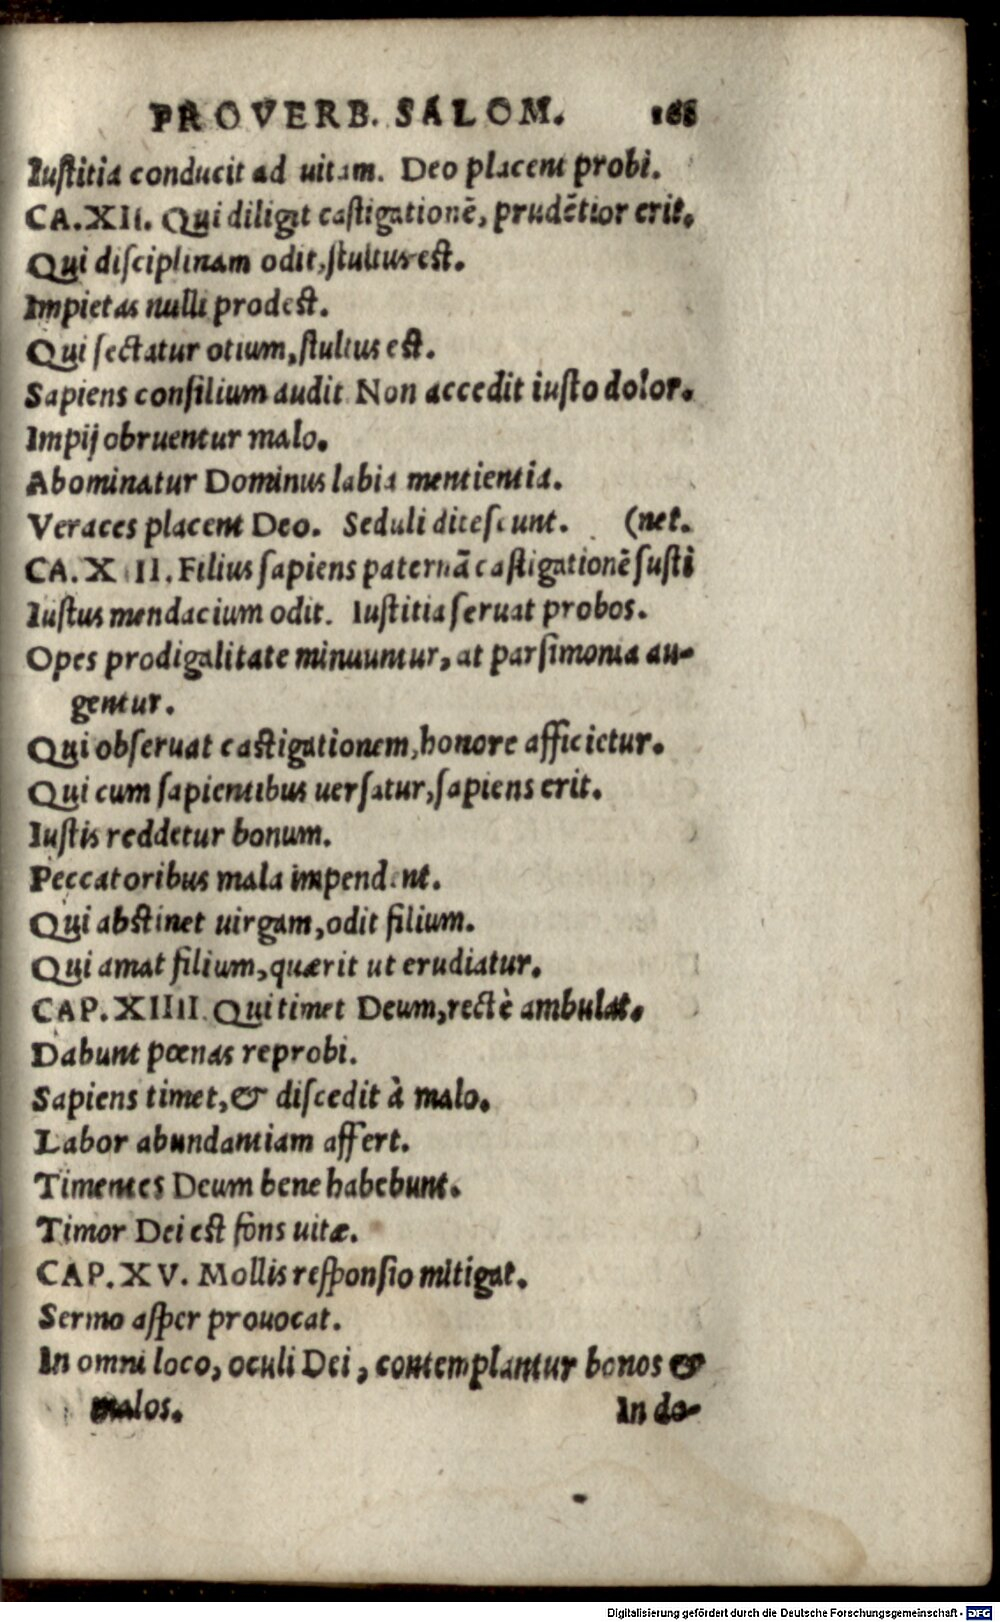 PROVERB. SALOM. 166
Iuſtitia conducit ad uitam. Deo placent probi.
CA.XII. Qui diligit caſtigationẽ, prudẽtior erit.
Qui diſciplinam odit, ſtultus eſt.
Impietas nulli prodeſt.
Qui ſectatur otium, ſtultus eſt.
Sapiens conſilium audit Non accedit iuſto dolor.
Impij obruentur malo.
Abominatur Dominus labia mentientia.
Veraces placent Deo. Seduli diteſcunt. (net.
CA. X III. Filius ſapiens paternã caſtigationẽ ſuſti
Iuſtus mendacium odit. Iuſtitia ſeruat probos.
Opes prodigalitate minuuntur, at parſimonia au-
gentur.
Qui obſeruat caſtigationem, honore afficietur.
Qui cum ſapientibus uerſatur, ſapiens erit.
Iuſtis reddetur bonum.
Peccatoribus mala impendent.
Qui abſtinet uirgam, odit filium.
Qui amat filium, quærit ut erudiatur.
CAP. XIIII Qui timet Deum, rectè ambulat.
Dabunt pœnas reprobi.
Sapiens timet, & diſcedit à malo.
Labor abundantiam affert.
Timentes Deum bene habebunt.
Timor Dei eſt fons uitæ.
CAP. XV. Mollis reſponſio mitigat.
Sermo aſper prouocat.
In omni loco, oculi Dei, contemplantur bonos &
malos. In do-
Digitalisierung gefördert durch die Deutsche Forschungsgemeinschaft - DFG